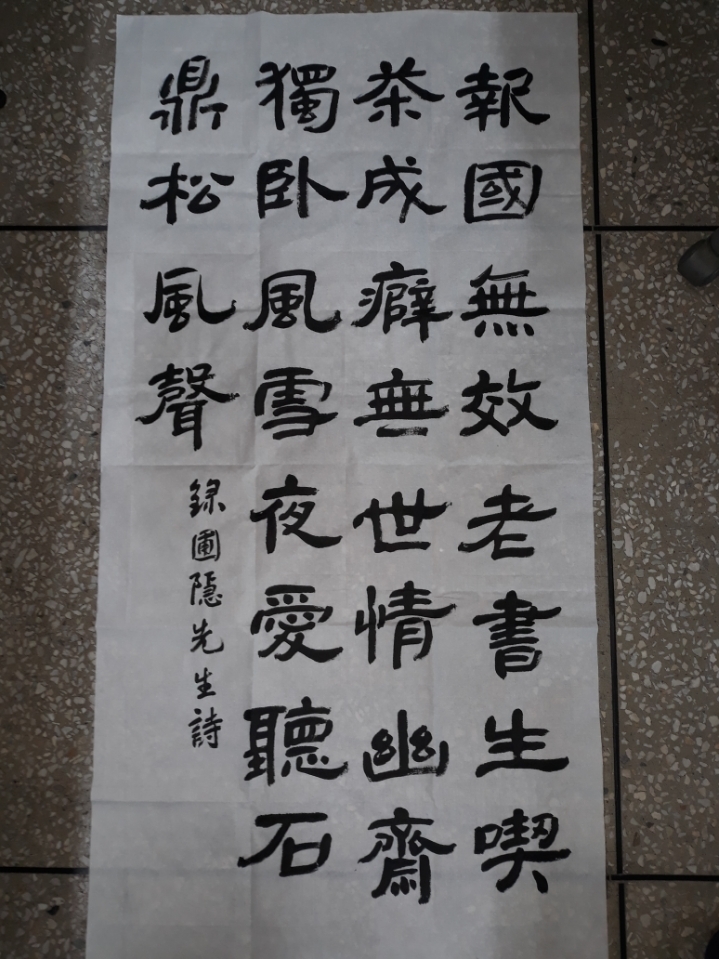 報國無效老書生喫
茶成癖無世情幽齋
獨卧風雪夜愛聽石
鼎松風聲
録圃隱先生詩